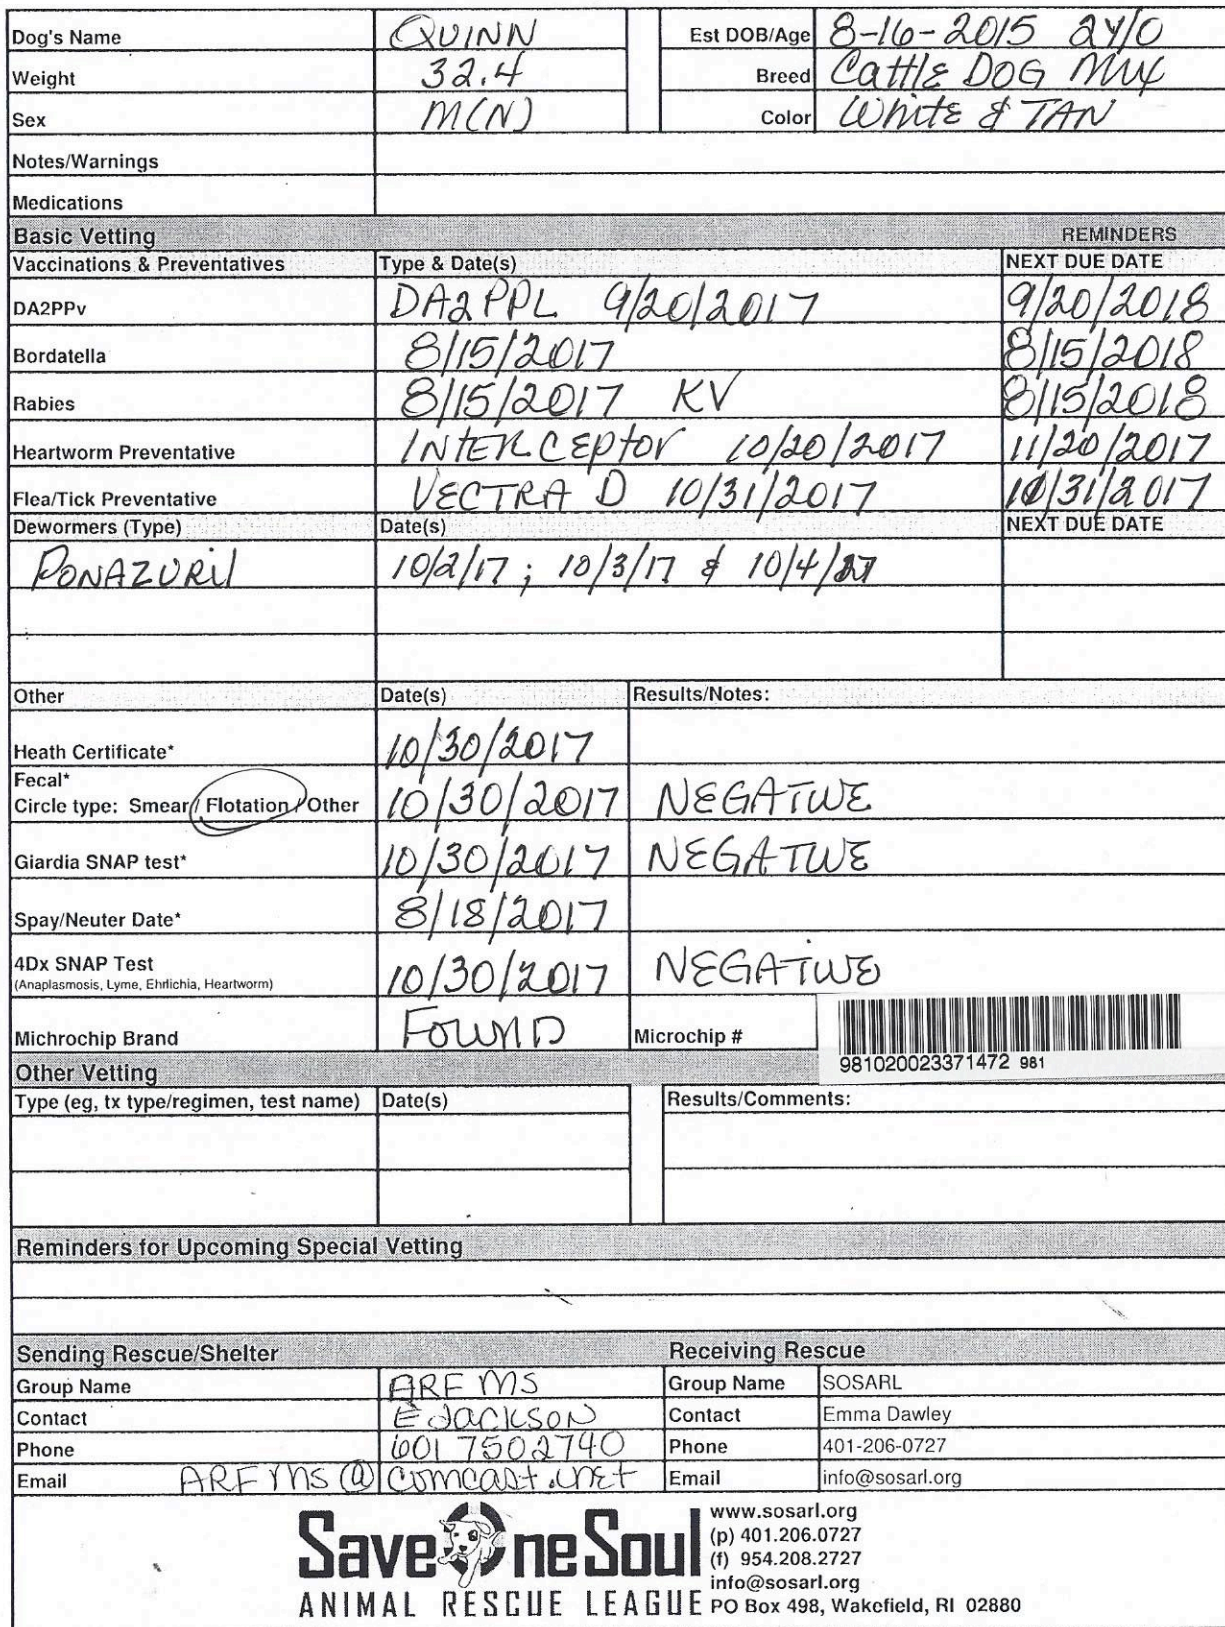 Dog's Name QUINN Est DOB/Age 8-16-2015 2Y/O
Weight 32.4 Breed CattlE DOG Mix
Sex M(N) Color WhitE & TAN
Notes/Warnings
Medications
Basic Vetting REMINDERS
Vaccinations & Preventatives Type & Date(s) NEXT DUE DATE
DA2PPv DA2PPL 9/20/2017 9/20/2018
Bordatella 8/15/2017 8/15/2018
Rabies 8/15/2017 KV 8/15/2018
Heartworm Preventative INTERCEptor 10/20/2017 11/20/2017
Flea/Tick Preventative VECTRA D 10/31/2017 /31/2017
Dewormers (Type) Date(s) NEXT DUE DATE
PONAZURil 10/2/17; 10/3/17 & 10/4/17
Other Date(s) Results/Notes:
Heath Certificate* 10/30/2017
Fecal*
Circle type: Smear / Flotation / Other 10/30/2017 NEGATIVE
Giardia SNAP test* 10/30/2017 NEGATIVE
Spay/Neuter Date* 8/18/2017
4Dx SNAP Test 10/30/2017 NEGATIVE
(Anaplasmosis, Lyme, Ehrlichia, Heartworm)
Michrochip Brand FOUND Microchip #
981020023371472 981
Other Vetting
Type (eg, tx type/regimen, test name) Date(s) Results/Comments:
Reminders for Upcoming Special Vetting
Sending Rescue/Shelter Receiving Rescue
Group Name ARF MS Group Name SOSARL
Contact E Jackson Contact Emma Dawley
Phone 601 7502740 Phone 401-206-0727
Email ARFMS@comcast.net Email info@sosarl.org
Save One Soul
ANIMAL RESCUE LEAGUE
www.sosarl.org
(p) 401.206.0727
(f) 954.208.2727
info@sosarl.org
PO Box 498, Wakefield, RI 02880